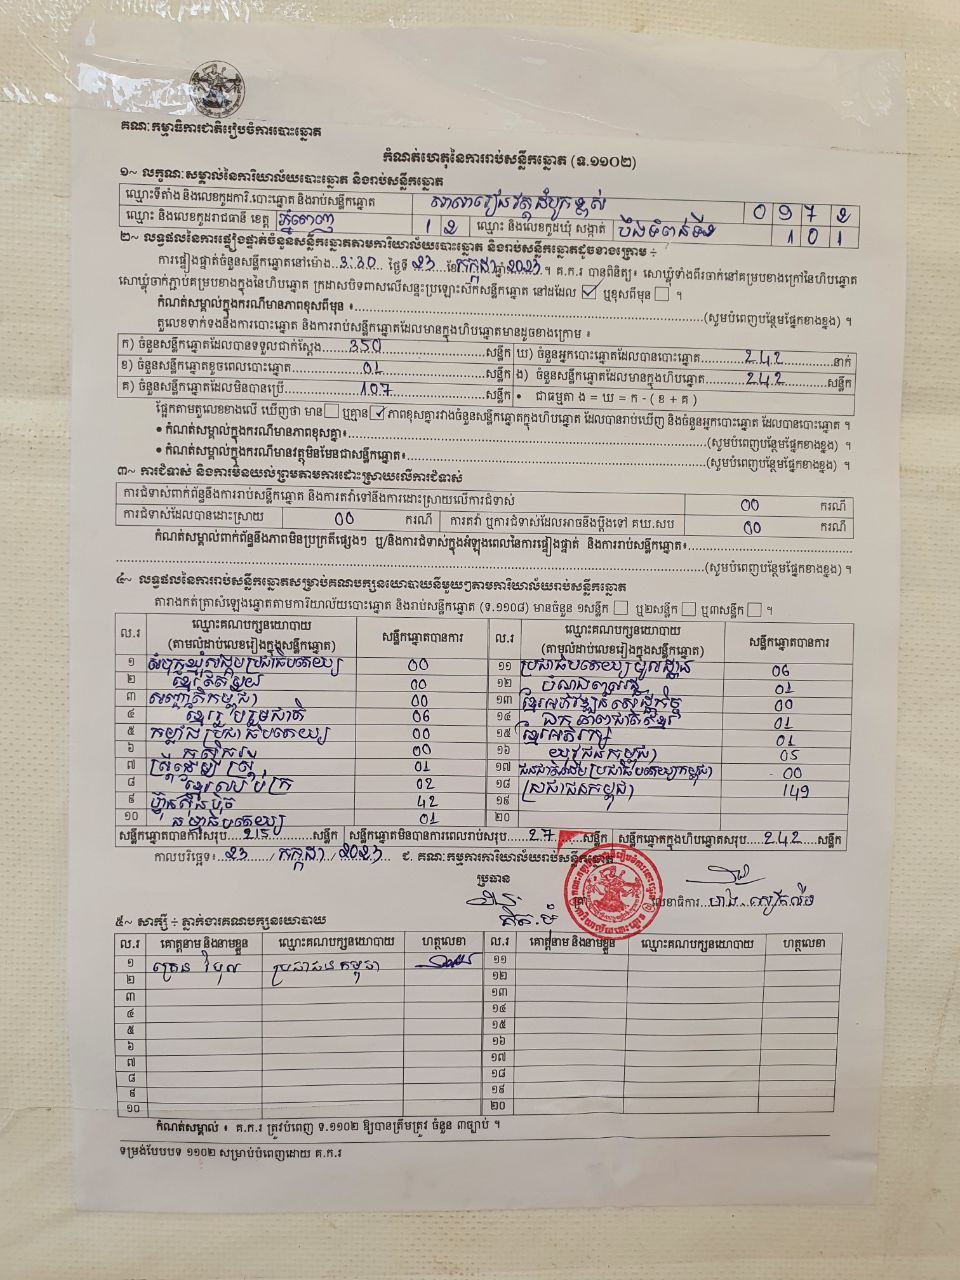 គណៈកម្មាធិការជាតិរៀបចំការបោះឆ្នោត
កំណត់ហេតុនៃការរាប់សន្លឹកឆ្នោត (ទ.១១០២)
១~ លក្ខណៈសម្គាល់នៃការិយាល័យបោះឆ្នោត និងរាប់សន្លឹកឆ្នោត
ឈ្មោះទីតាំង និងលេខកូដការិ.បោះឆ្នោត និងរាប់សន្លឹកឆ្នោត 0 9 7 2
ឈ្មោះ និងលេខកូដរាជធានី ខេត្ត ភ្នំពេញ 1 2 ឈ្មោះ និងលេខកូដឃុំ សង្កាត់ 1 0 1
២~ លទ្ធផលនៃការផ្ទៀងផ្ទាត់ចំនួនសន្លឹកឆ្នោតតាមការិយាល័យបោះឆ្នោត និងរាប់សន្លឹកឆ្នោតដូចខាងក្រោម ÷
ការផ្ទៀងផ្ទាត់ចំនួនសន្លឹកឆ្នោតនៅម៉ោង...3:30 ថ្ងៃទី 23 ខែកក្កដា ឆ្នាំ 2023។ គ.ក.រ បានពិនិត្យ៖ សោឃ្លុំទាំងពីរចាក់នៅគម្របខាងក្រៅនៃហិបឆ្នោត
សោឃ្លុំចាក់ភ្ជាប់គម្របខាងក្នុងនៃហិបឆ្នោត ក្រដាសបិទពាសលើសន្ទះប្រឡោះសឹកសន្លឹកឆ្នោត នៅដដែល ☑ ឬខុសពីមុន ☐ ។
កំណត់សម្គាល់ក្នុងករណីមានភាពខុសពីមុន ៖ (សូមបំពេញបន្ថែមផ្នែកខាងខ្នង) ។
តួលេខទាក់ទងនឹងការបោះឆ្នោត និងការរាប់សន្លឹកឆ្នោតដែលមានក្នុងហិបឆ្នោតមានដូចខាងក្រោម ៖
ក) ចំនួនសន្លឹកឆ្នោតដែលបានទទួលជាក់ស្តែង 350 សន្លឹក ឃ) ចំនួនអ្នកបោះឆ្នោតដែលបានបោះឆ្នោត 242 នាក់
ខ) ចំនួនសន្លឹកឆ្នោតខូចពេលបោះឆ្នោត 01 សន្លឹក ង) ចំនួនសន្លឹកឆ្នោតដែលមានក្នុងហិបឆ្នោត 242 សន្លឹក
គ) ចំនួនសន្លឹកឆ្នោតដែលមិនបានប្រើ 107 សន្លឹក • ជាធម្មតា ង = ឃ = ក - ( ខ + គ )
ផ្អែកតាមតួលេខខាងលើ ឃើញថា មាន ☐ ឬគ្មាន ☑ ភាពខុសគ្នារវាងចំនួនសន្លឹកឆ្នោតក្នុងហិបឆ្នោត ដែលបានរាប់ឃើញ និងចំនួនអ្នកបោះឆ្នោត ដែលបានបោះឆ្នោត ។
• កំណត់សម្គាល់ក្នុងករណីមានភាពខុសគ្នា៖ (សូមបំពេញបន្ថែមផ្នែកខាងខ្នង) ។
• កំណត់សម្គាល់ក្នុងករណីមានវត្ថុមិនមែនជាសន្លឹកឆ្នោត៖ (សូមបំពេញបន្ថែមផ្នែកខាងខ្នង) ។
៣~ ការជំទាស់ និងការមិនយល់ព្រមតាមការដោះស្រាយលើការជំទាស់
ការជំទាស់ពាក់ព័ន្ធនឹងការរាប់សន្លឹកឆ្នោត និងការតវ៉ាទៅនឹងការដោះស្រាយលើការជំទាស់ 00 ករណី
ការជំទាស់ដែលបានដោះស្រាយ 00 ករណី ការតវ៉ា ឬការជំទាស់ដែលអាចនឹងប្តឹងទៅ គឃ.សប 00 ករណី
កំណត់សម្គាល់ពាក់ព័ន្ធនឹងភាពមិនប្រក្រតីផ្សេងៗ ឬ/និងការជំទាស់ក្នុងអំឡុងពេលនៃការផ្ទៀងផ្ទាត់ និងការរាប់សន្លឹកឆ្នោត៖
(សូមបំពេញបន្ថែមផ្នែកខាងខ្នង) ។
៤~ លទ្ធផលនៃការរាប់សន្លឹកឆ្នោតសម្រាប់គណបក្សនយោបាយនីមួយៗតាមការិយាល័យរាប់សន្លឹកឆ្នោត
តារាងកត់ត្រាសំឡេងឆ្នោតតាមការិយាល័យបោះឆ្នោត និងរាប់សន្លឹកឆ្នោត (ទ.១១០៨) មានចំនួន ១សន្លឹក ☐ ឬ២សន្លឹក ☐ ឬ៣សន្លឹក ☐ ។
ល.រ ឈ្មោះគណបក្សនយោបាយ (តាមលំដាប់លេខរៀងក្នុងសន្លឹកឆ្នោត) សន្លឹកឆ្នោតបានការ ល.រ ឈ្មោះគណបក្សនយោបាយ (តាមលំដាប់លេខរៀងក្នុងសន្លឹកឆ្នោត) សន្លឹកឆ្នោតបានការ
១ សំបុកឃ្មុំសង្គមប្រជាធិបតេយ្យ 00 ១១ 06
២ ខ្មែរតែមួយ 00 ១២ 01
៣ សញ្ជាតិកម្ពុជា 00 ១៣ 00
៤ ខ្មែររួបរួមជាតិ 06 ១៤ ឯកភាពជាតិខ្មែរ 01
៥ កម្លាំងប្រជាធិបតេយ្យ 00 ១៥ ខ្មែរអភិរក្ស 01
៦ កសិករ 00 ១៦ យុវជនកម្ពុជា 05
៧ ស្ត្រីដើម្បីស្ត្រី 01 ១៧ ជនជាតិដើមប្រជាធិបតេយ្យកម្ពុជា 00
៨ ខ្មែរឈប់ក្រ 02 ១៨ ប្រជាជនកម្ពុជា 149
៩ ហ្វ៊ុនស៊ិនប៉ិច 42 ១៩
១០ ធម្មាធិបតេយ្យ 01 ២០
សន្លឹកឆ្នោតបានការសរុប 215 សន្លឹក សន្លឹកឆ្នោតមិនបានការពេលរាប់សរុប 27 សន្លឹក សន្លឹកឆ្នោតក្នុងហិបឆ្នោតសរុប 242 សន្លឹក
កាលបរិច្ឆេទ៖ 23 / កក្កដា / 2023 ជ. គណៈកម្មការការិយាល័យរាប់សន្លឹកឆ្នោត
ប្រធាន
លេខាធិការ
៥~ សាក្សី ÷ ភ្នាក់ងារគណបក្សនយោបាយ
ល.រ គោត្តនាម និងនាមខ្លួន ឈ្មោះគណបក្សនយោបាយ ហត្ថលេខា ល.រ គោត្តនាម និងនាមខ្លួន ឈ្មោះគណបក្សនយោបាយ ហត្ថលេខា
១ ប្រជាជនកម្ពុជា ១១
២ ១២
៣ ១៣
៤ ១៤
៥ ១៥
៦ ១៦
៧ ១៧
៨ ១៨
៩ ១៩
១០ ២០
កំណត់សម្គាល់ ៖ គ.ក.រ ត្រូវបំពេញ ទ.១១០២ ឱ្យបានត្រឹមត្រូវ ចំនួន ៣ច្បាប់ ។
ទម្រង់បែបបទ ១១០២ សម្រាប់បំពេញដោយ គ.ក.រ